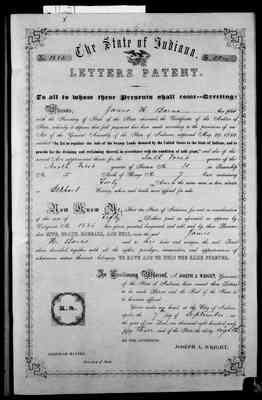 The State of Indiana,
LETTERS PATENT.
To all to whom these Presents shall come—Greeting:
Whereas, James H. has filed
with the Secretary of State of the State aforesaid, the Certificate of the Auditor of
State, whereby it appears that full payment has been made according to the provisions of an
Act of the General Assembly of the State of Indiana, approved May
entitled "An Act to regulate the sale of the swamp lands donated by the United States to the State of Indiana, and to
provide for the draining and reclaiming thereof, in accordance with the condition of said grant," and also of the
several Acts supplemental thereto for the South West quarter of the
North West quarter of Section No. in Township
No. North of Range No. 7 East containing
Forty Acres the same more or less, situate
in Elkhart County, where such lands were offered for sale.
Now Know Ye, That the State of Indiana, for and in consideration
of the sum of Dollars, paid as aforesaid, as appears by
Certificate No. has given, granted, bargained and sold, and by these Presents
does GIVE, GRANT, BARGAIN, AND SELL, unto the said James
H. and to his heirs and assigns, the said Tract
above described, together with all the rights, privileges, immunities, and appurtenances, of
whatsoever nature thereunto belonging, TO HAVE AND TO HOLD THE SAME FOREVER.
In Testimony Whereof, I, JOSEPH A. WRIGHT, Governor
of the State of Indiana, have caused these Letters
to be made Patent, and the Seal of the State to
be hereunto affixed.
Given under my hand, at the City of Indiana-
polis, the 7 day of September in
the year of our Lord, one thousand eight hundred and
fifty and of the State the thirty eighth
BY THE GOVERNOR:
JOSEPH A. WRIGHT.
Secretary of State.